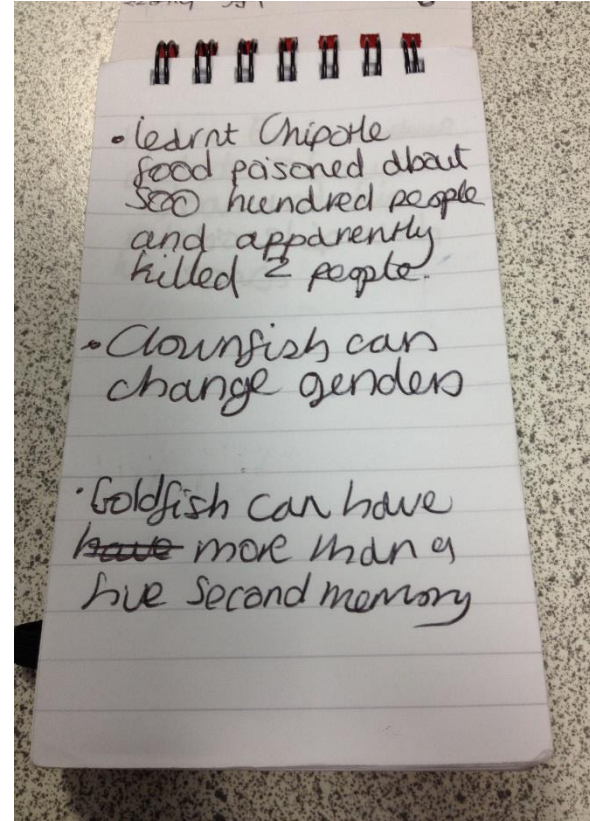 • learnt Chipotle
food poisoned about
500 hundred people
and apparently
killed 2 people.
• Clownfish can
change genders
• Goldfish can have
have more than a
five second memory